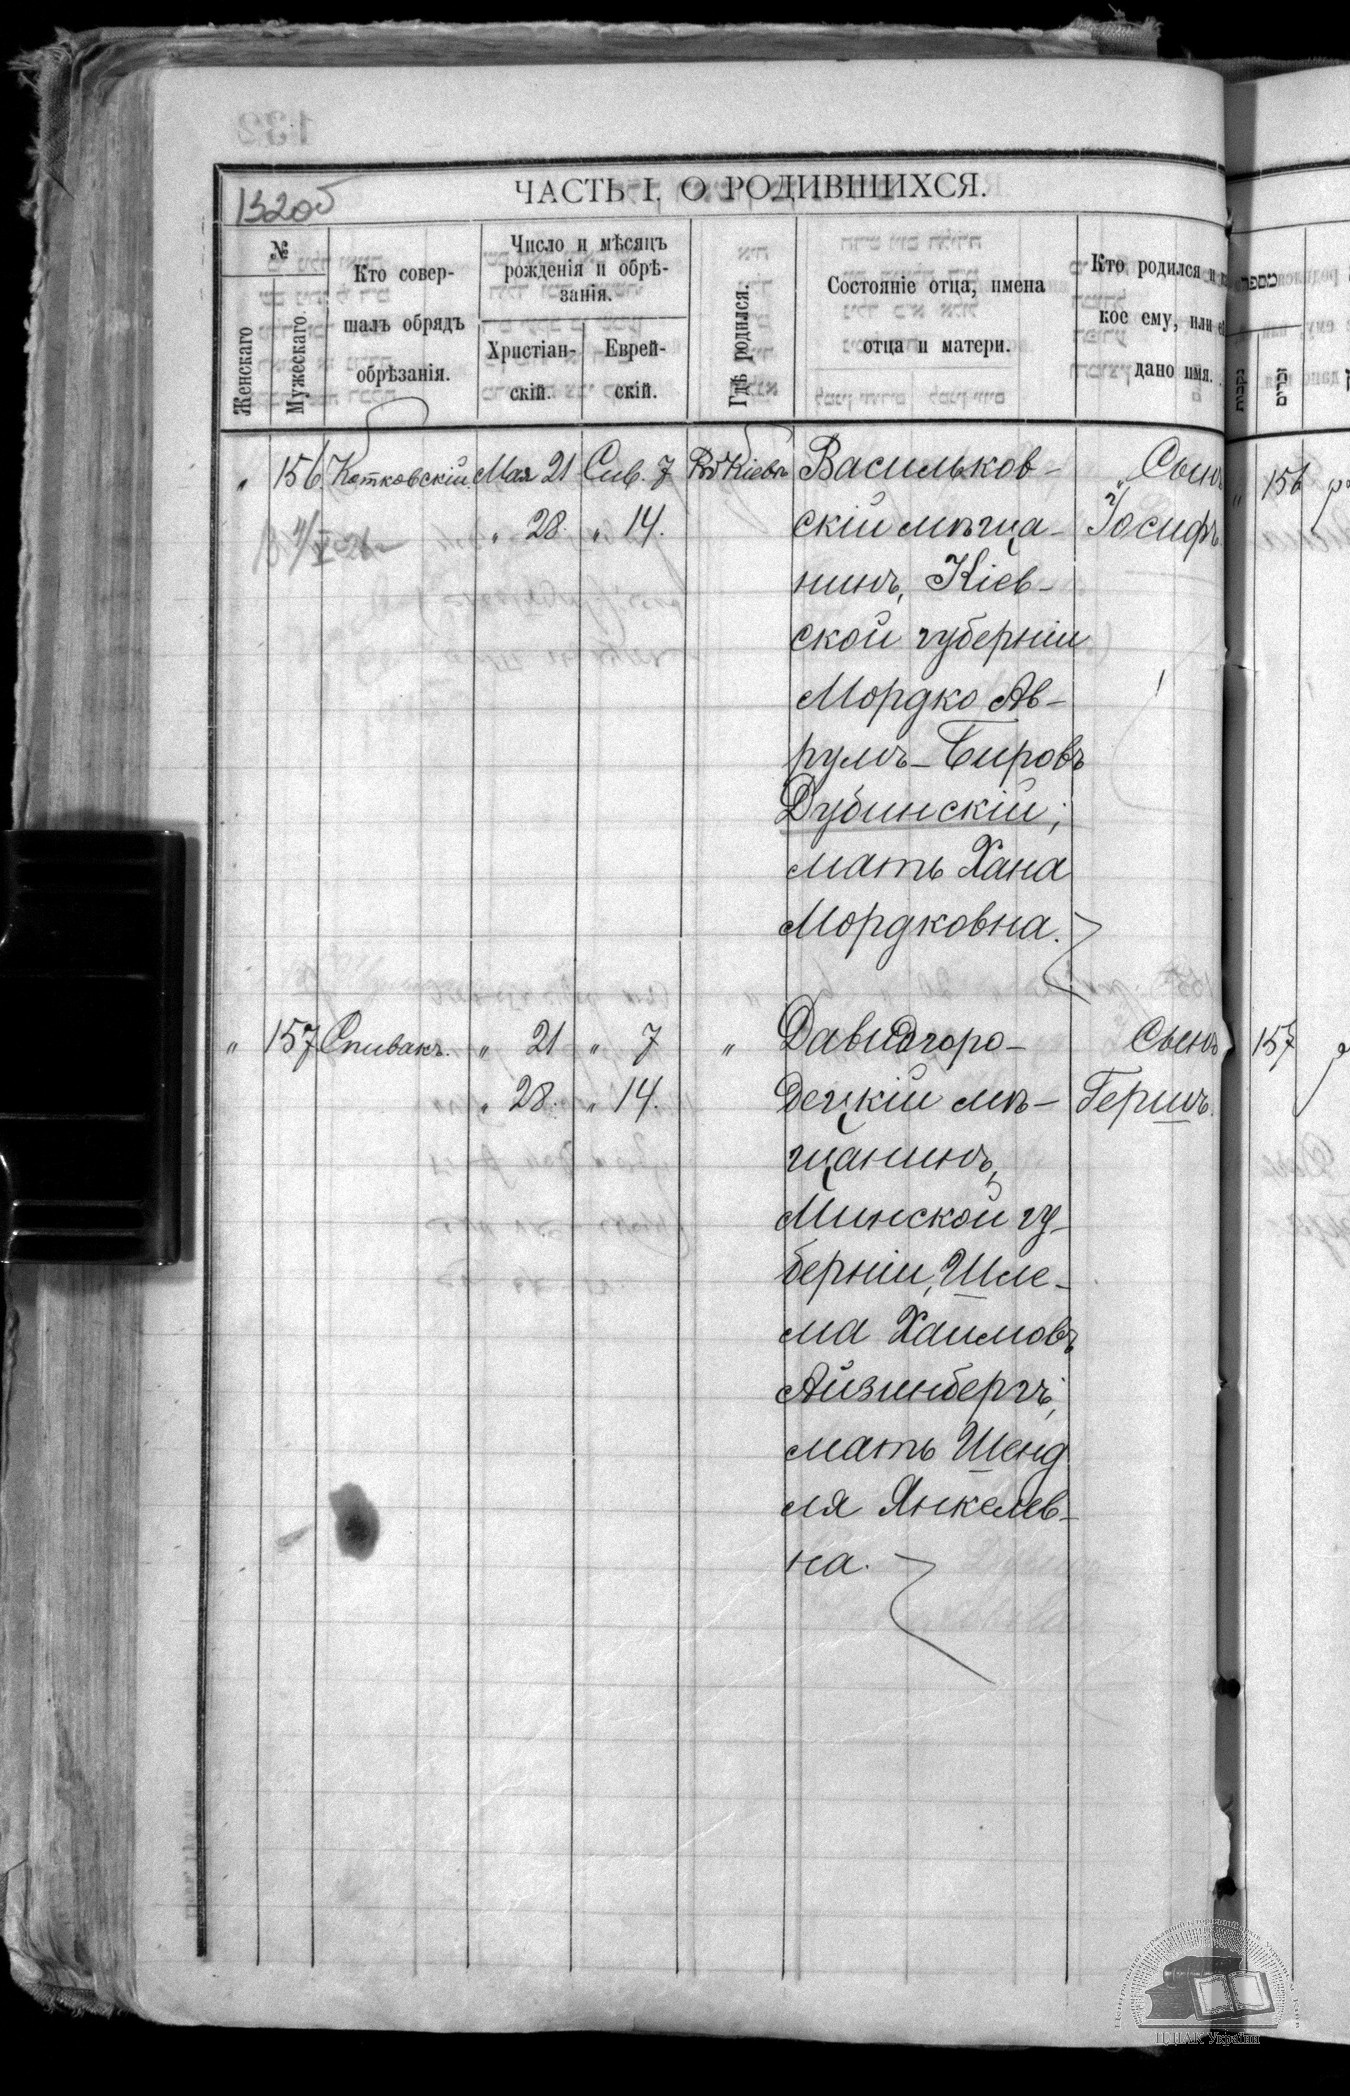 132об
ЧАСТЬ I. О РОДИВШИХСЯ.
№
Женскаго
Мужескаго.
Кто совер-
шалъ обрядъ
обрѣзанія.
Число и мѣсяцъ
рожденія и обрѣ-
занія.
Христіан-
скій.
Еврей-
скій.
Гдѣ родился.
Состояніе отца, имена
отца и матери.
Кто родился и ка
кое ему, или ей
дано имя.
מספר
נקבות
זכרים
„ 156 Котковскій Мая 21 Сив. 7 Въ Кіевѣ Васильков- „Сынъ
„ 28. „ 14. скій мѣща- Іосифъ.
нинъ, Кіев-
ской губерніи
Мордко Ав-
румъ-Бировъ
Дубинскій;
мать Хана
Мордковна.
„ 157 Спивакъ. „ 21 „ 7 „ Давидгоро- Сынъ
„ 28. „ 14. децкій мѣ- Гершъ.
щанинъ,
Минской гу-
берніи, Шле-
ма Хаимовъ
Айзинбергъ;
мать Шенд
ля Янкелев-
на.
„ 156
157
ЦДІАК України